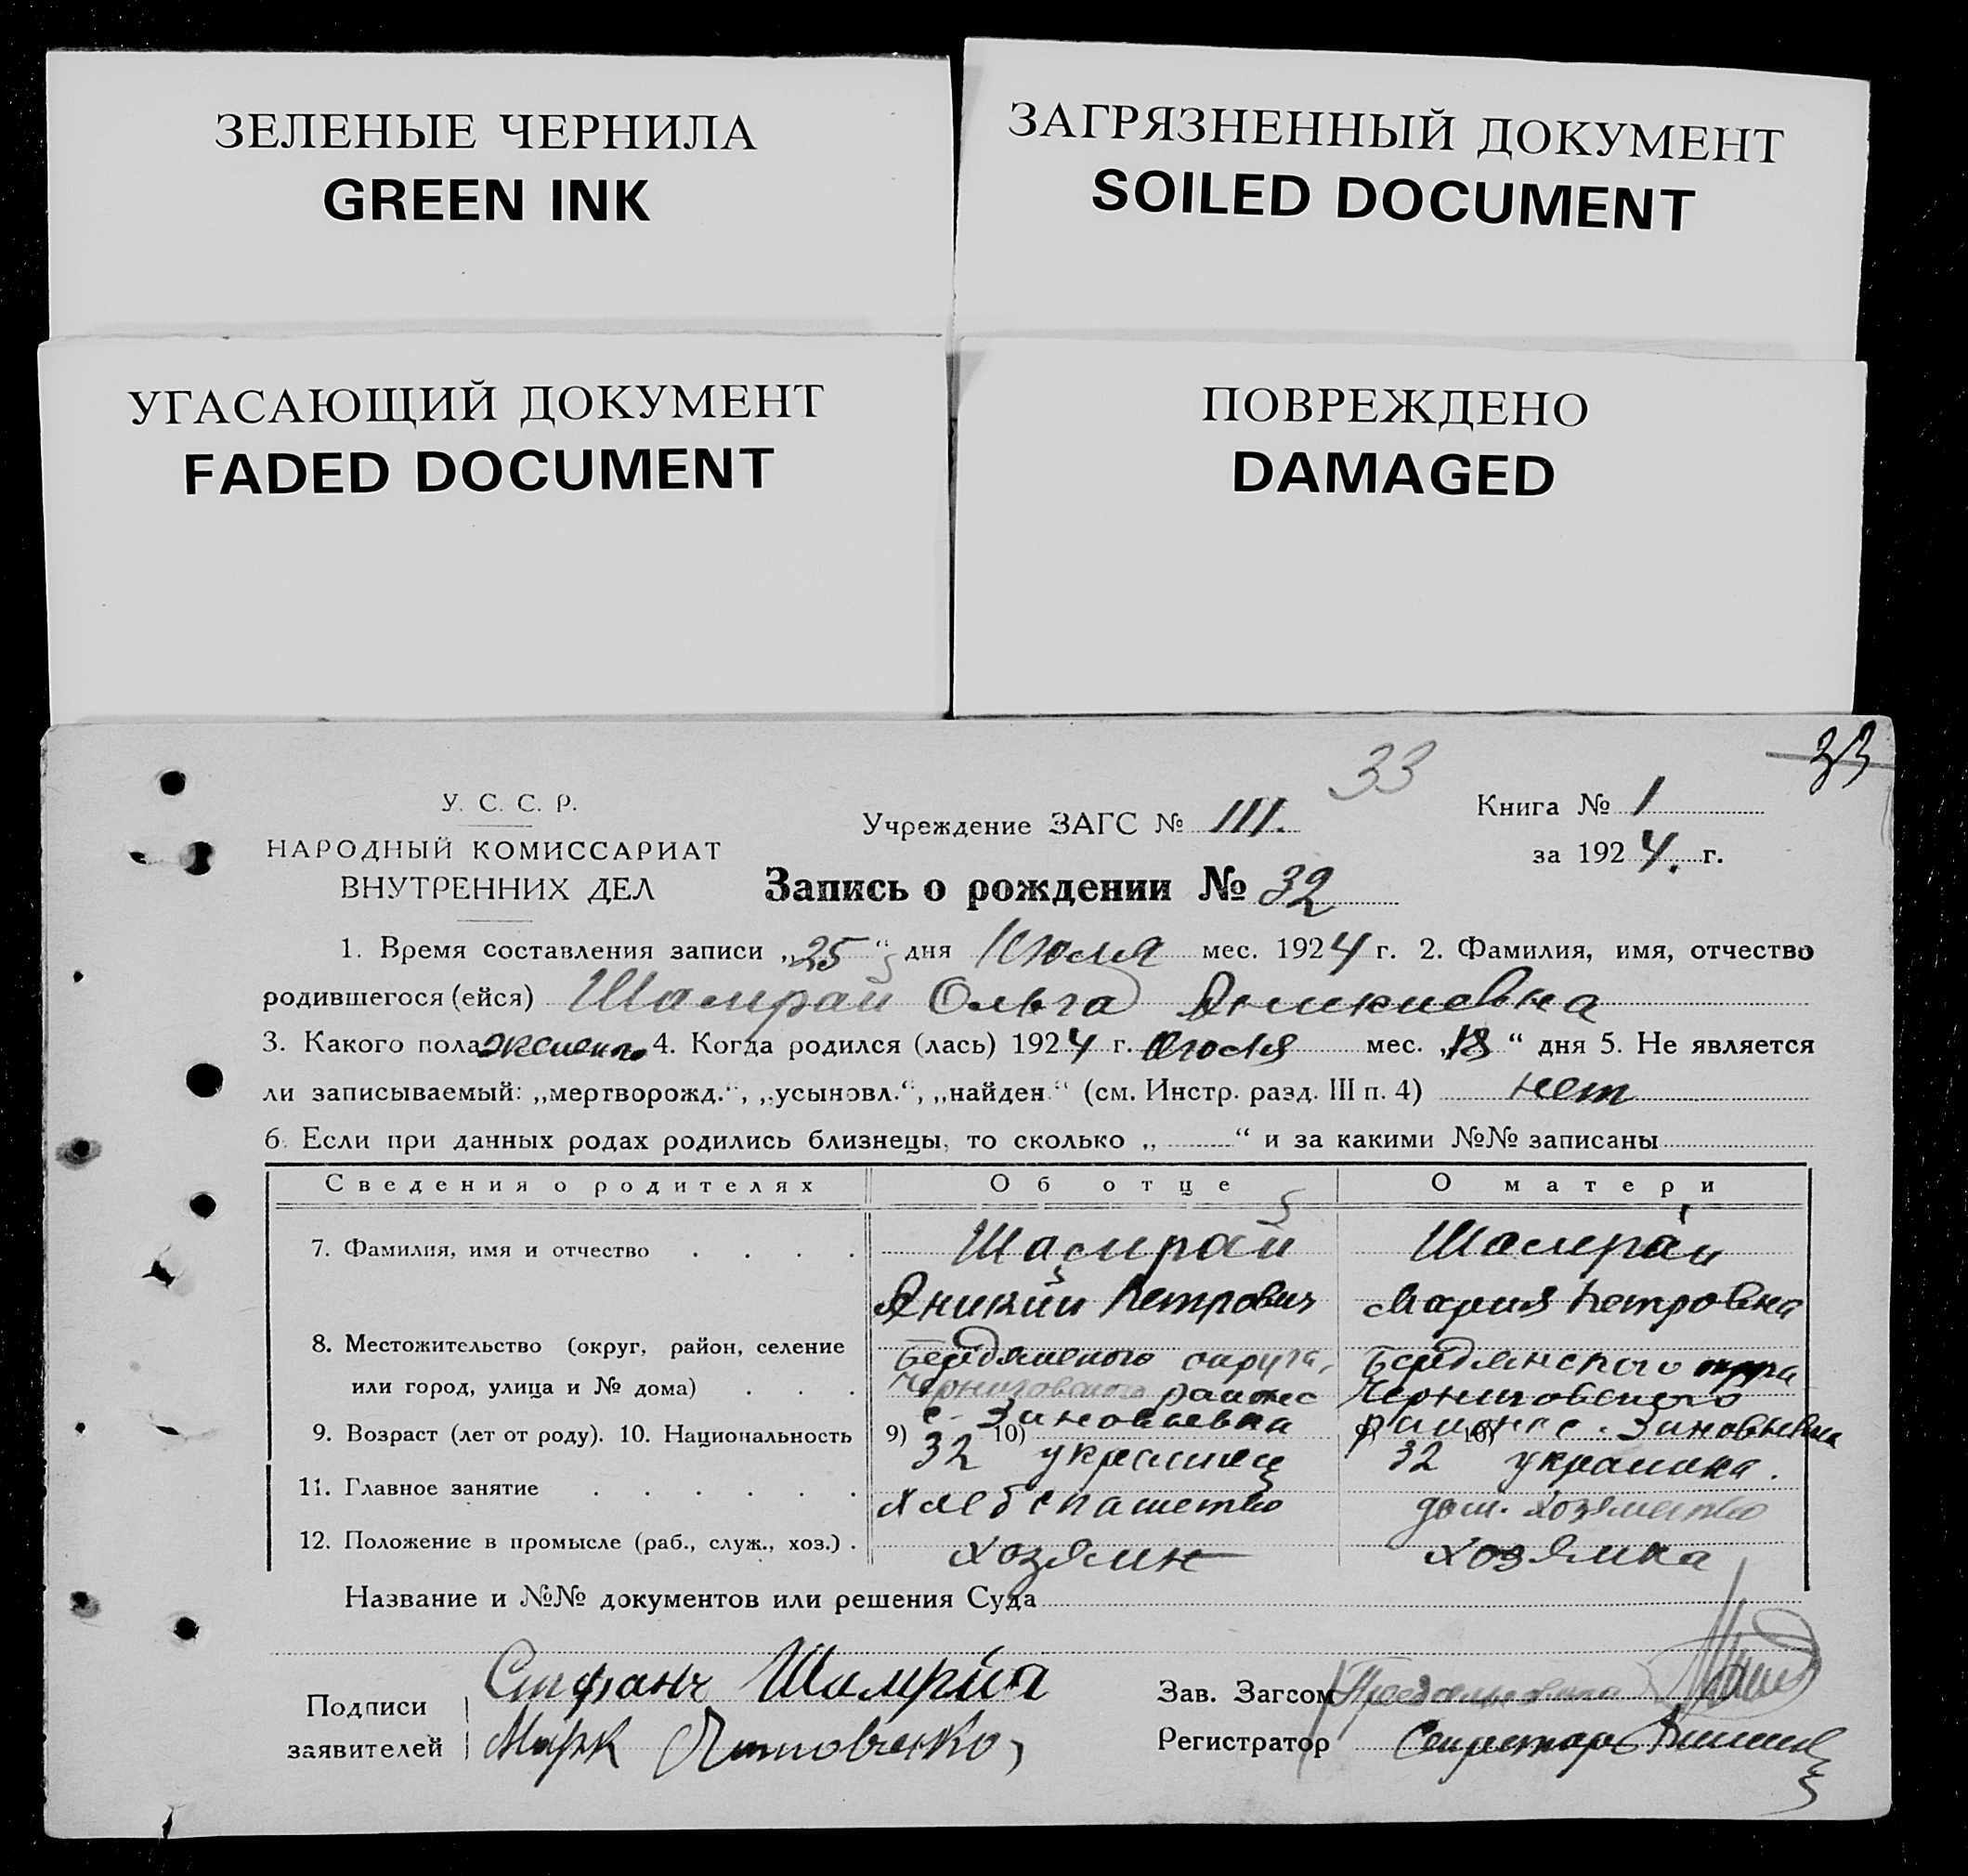 ЗЕЛЕНЫЕ ЧЕРНИЛА
GREEN INK
ЗАГРЯЗНЕННЫЙ ДОКУМЕНТ
SOILED DOCUMENT
УГАСАЮЩИЙ ДОКУМЕНТ
FADED DOCUMENT
ПОВРЕЖДЕНО
DAMAGED
33
33
У. С. С. Р.
НАРОДНЫЙ КОМИССАРИАТ
ВНУТРЕННИХ ДЕЛ
Учреждение ЗАГС № III.
Книга № 1
за 1924. г.
Запись о рождении № 32
1. Время составления записи „25“ дня Июля мес. 1924 г. 2. Фамилия, имя, отчество
родившегося (ейся) Шамрай Ольга Аникиевна
3. Какого пола женского 4. Когда родился (лась) 1924 г. Июля мес. „18“ дня 5. Не является
ли записываемый: „мертворожд.“, „усыновл.“, „найден.“ (см. Инстр. разд. III п. 4) нет
6. Если при данных родах родились близнецы, то сколько „ “ и за какими №№ записаны
Сведения о родителях Об отце О матери
7. Фамилия, имя и отчество . . . . Шамрай Шамрай
Аникий Петрович Мария Петровна
8. Местожительство (округ, район, селение Бердянского округа, Бердянского округа
или город, улица и № дома) . . . Черниговского района Черниговского
с. Зиновьевка района с. Зиновьевка
9. Возраст (лет от роду). 10. Национальность 9) 32 10) украинец 9) 32 10) украинка.
11. Главное занятие . . . . . . Хлебопашество дом. хозяйство
12. Положение в промысле (раб., служ., хоз.) . хозяин хозяйка
Название и №№ документов или решения Суда
Подписи Шамрай
заявителей Марк
Зав. Загсом
Регистратор Секретарь